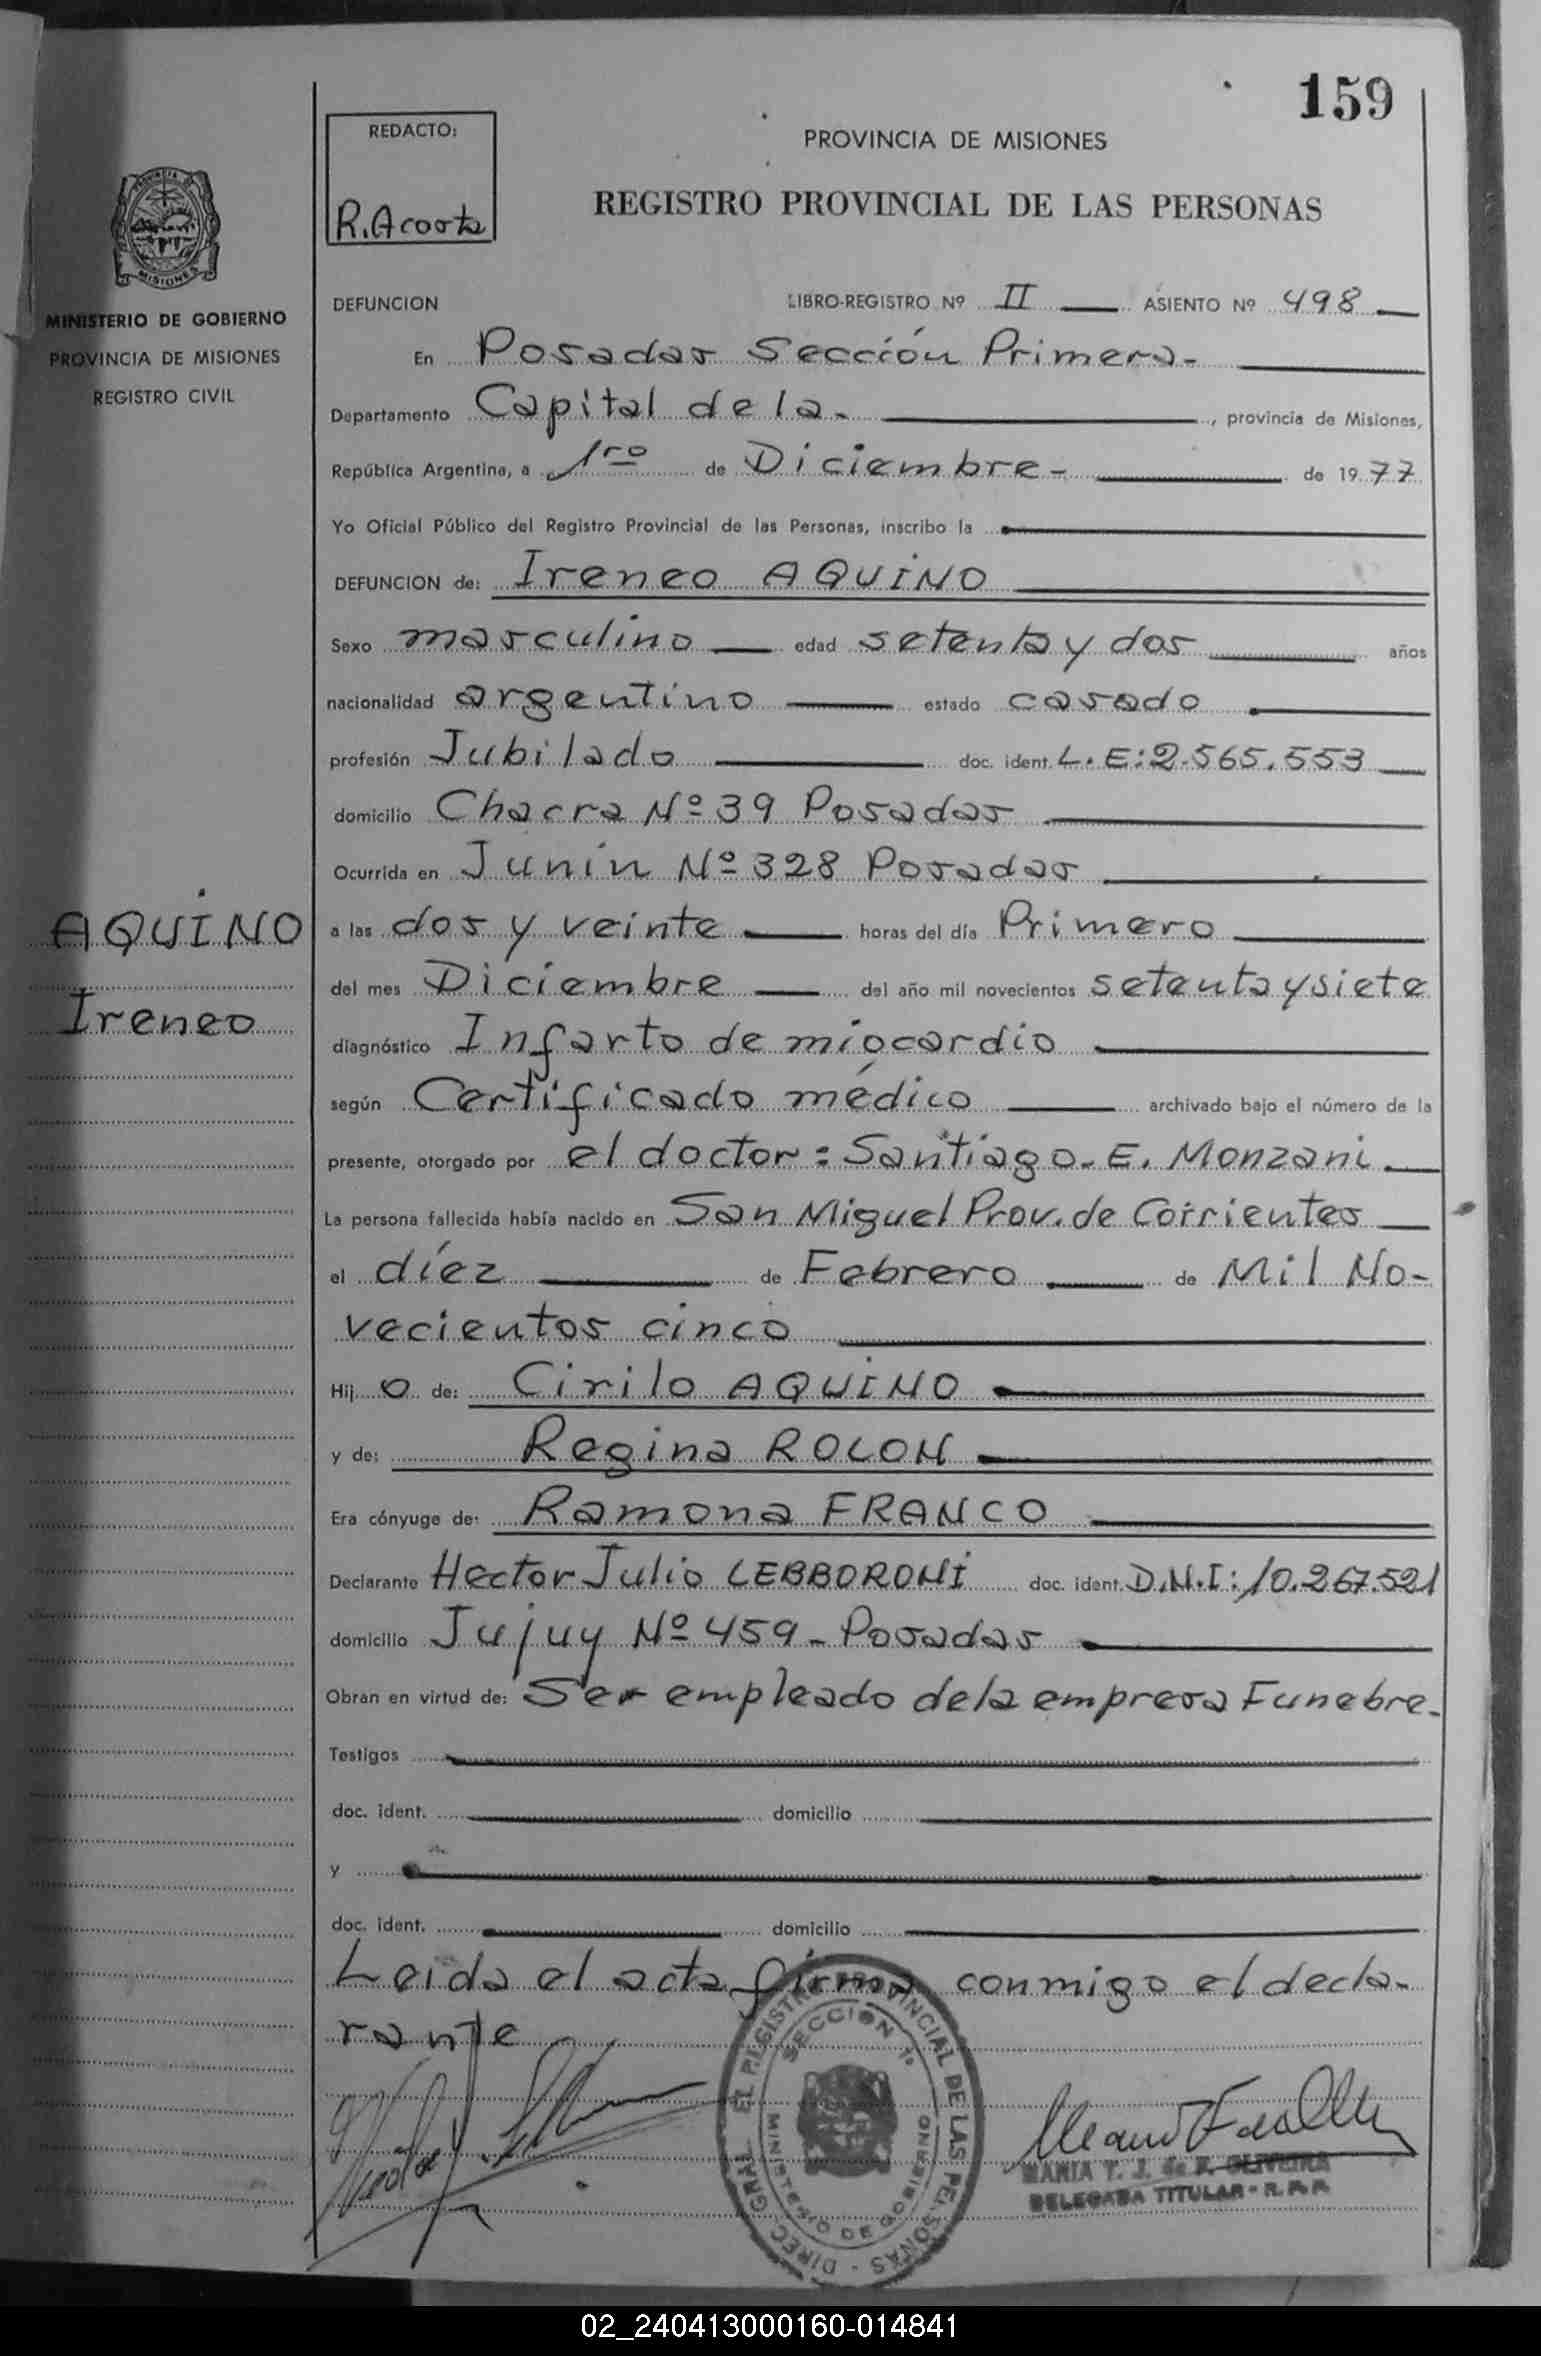 159
REDACTO:
R. Acosta
PROVINCIA DE MISIONES
REGISTRO PROVINCIAL DE LAS PERSONAS
MISIONES
MINISTERIO DE GOBIERNO
PROVINCIA DE MISIONES
REGISTRO CIVIL
DEFUNCION LIBRO-REGISTRO Nº II ASIENTO Nº 498
En Posadas Sección Primera-
Departamento Capital de la- , provincia de Misiones,
República Argentina, a 1ro de Diciembre- de 1977
Yo Oficial Público del Registro Provincial de las Personas, inscribo la
DEFUNCION de: Ireneo AQUINO
Sexo masculino edad setenta y dos años
nacionalidad argentino estado casado
profesión Jubilado doc. ident. L. E: 2.565.553
domicilio Chacra Nº 39 Posadas
Ocurrida en Junín Nº 328 Posadas
AQUINO
Ireneo
a las dos y veinte horas del día Primero
del mes Diciembre del año mil novecientos setenta y siete
diagnóstico Infarto de miocardio
según Certificado médico archivado bajo el número de la
presente, otorgado por el doctor: Santiago. E. Monzani
La persona fallecida había nacido en San Miguel Prov. de Corrientes
el díez de Febrero de Mil No-
vecientos cinco
Hij o de: Cirilo AQUINO
y de: Regina ROLON
Era cónyuge de: Ramona FRANCO
Declarante Hector Julio LEBBORONI doc. ident. D.N.I: 10.267.521
domicilio Jujuy Nº 459- Posadas
Obran en virtud de: Ser empleado de la empresa Funebre-
Testigos
doc. ident. domicilio
y
doc. ident. domicilio
Leida el acta firma conmigo el decla-
rante
DIREC. GRAL. EL REGISTRO PROVINCIAL DE LAS PERSONAS
SECCION 1ª
MINISTERIO DE GOBIERNO
MARIA T. J. de F. OLIVEIRA
DELEGADA TITULAR - R.P.P.
02_240413000160-014841